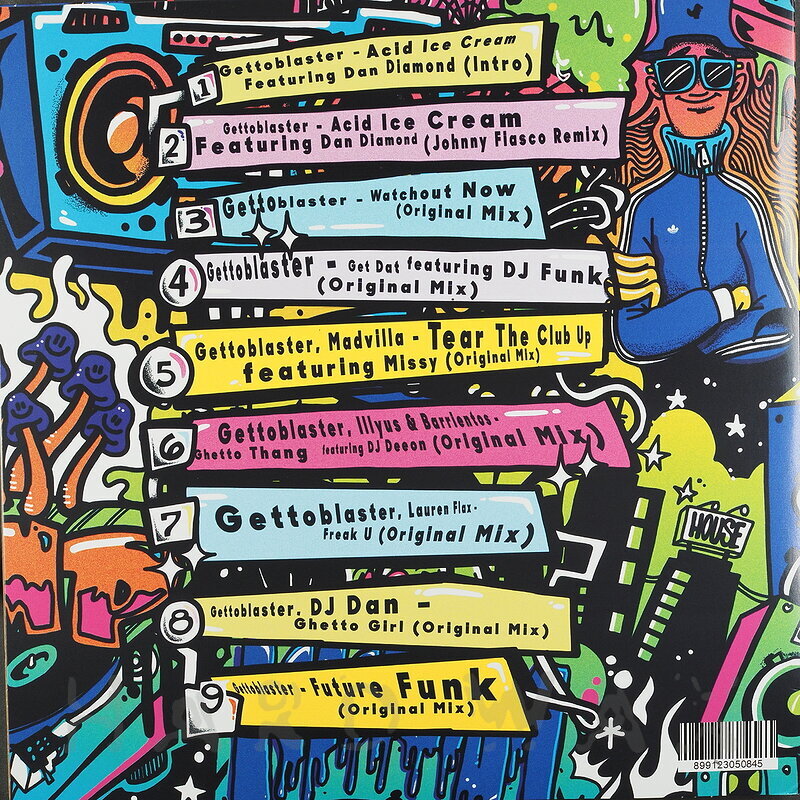 1
Gettoblaster - Acid Ice Cream
Featuring Dan Diamond (Intro)
2
Gettoblaster - Acid Ice Cream
Featuring Dan Diamond (Johnny Fiasco Remix)
3
Gettoblaster - Watchout Now
(Original Mix)
4
Gettoblaster - Get Dat featuring DJ Funk
(Original Mix)
5
Gettoblaster, Madvilla - Tear The Club Up
featuring Missy (Original Mix)
6
Gettoblaster, Illyus & Barrientos -
Ghetto Thang featuring DJ Deeon (Original Mix)
7
Gettoblaster, Lauren Flax -
Freak U (Original Mix)
HOUSE
8
Gettoblaster, DJ Dan -
Ghetto Girl (Original Mix)
9
Gettoblaster - Future Funk
(Original Mix)
899123050845